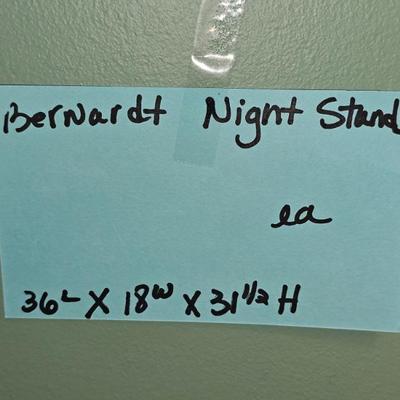 Bernardt Night Stand
ea
36L X 18W X 31 1/2 H